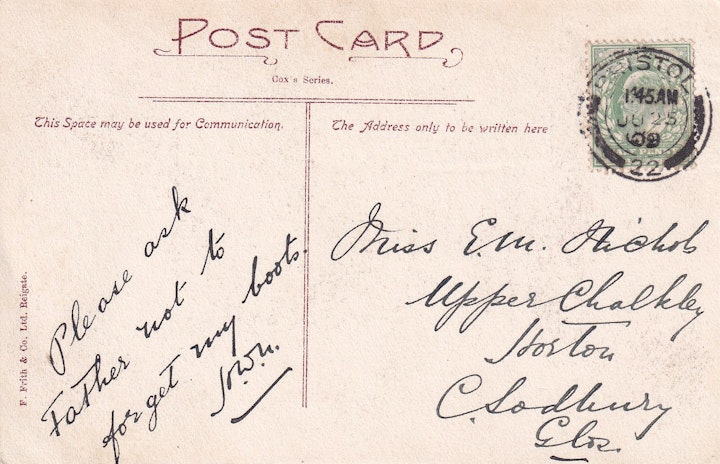 POST CARD
Cox's Series.
This Space may be used for Communication.
The Address only to be written here
BRISTOL
1.45AM
JU 25
09
22
Please ask
Father not to
forget my boots.
Miss E.M. Nichols
Upper Chalkley
Horton
C. Sodbury
Glos.
F. Frith & Co. Ltd. Reigate.